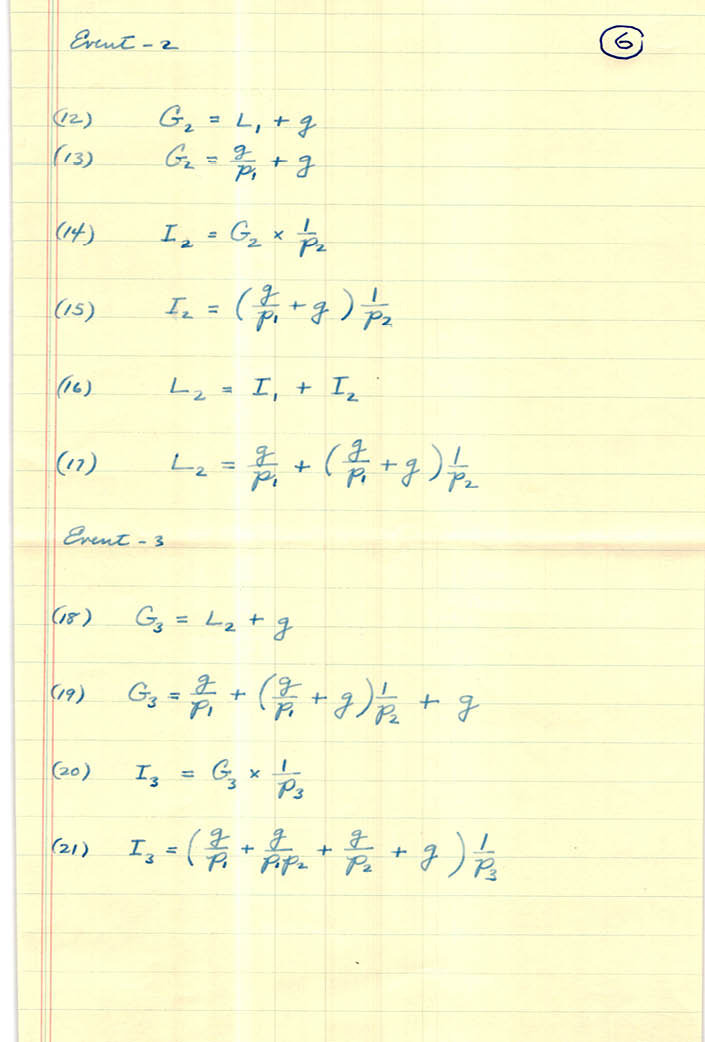 Event - 2 ⑥
(12) G₂ = L₁ + g
(13) G₂ = g/p₁ + g
(14) I₂ = G₂ × 1/p₂
(15) I₂ = (g/p₁ + g) 1/p₂
(16) L₂ = I₁ + I₂
(17) L₂ = g/p₁ + (g/p₁ + g) 1/p₂
Event - 3
(18) G₃ = L₂ + g
(19) G₃ = g/p₁ + (g/p₁ + g) 1/p₂ + g
(20) I₃ = G₃ × 1/p₃
(21) I₃ = (g/p₁ + g/p₁p₂ + g/p₂ + g) 1/p₃